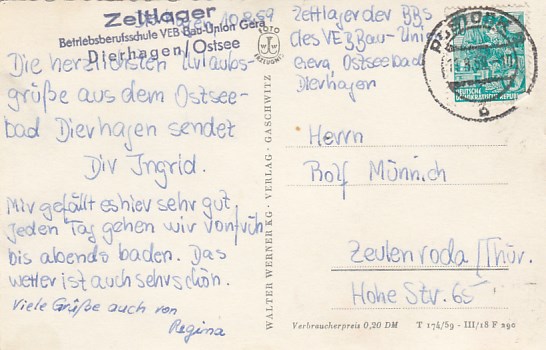 Zeltlager
Betriebsberufsschule VEB Bau-Union Gera
Dierhagen/Ostsee
10.8.59
Die herzlichsten Urlaubs-
grüße aus dem Ostsee-
bad Dierhagen sendet
Dir Ingrid.
Mir gefällt es hier sehr gut.
Jeden Tag gehen wir von früh
bis abends baden. Das
Wetter ist auch sehr schön.
Viele Grüße auch von
Regina
FOTO
WALTER WERNER KG · VERLAG · GASCHWITZ
Zeltlager der BBS
des VEB Bau-Union
Gera Ostseebad
Dierhagen
DEUTSCHE
DEMOKRATISCHE REPUBLIK
Herrn
Rolf Münnich
Zeulenroda/Thür.
Hohe Str. 65
Verbraucherpreis 0,20 DM T 174/59 - III/18 F 290